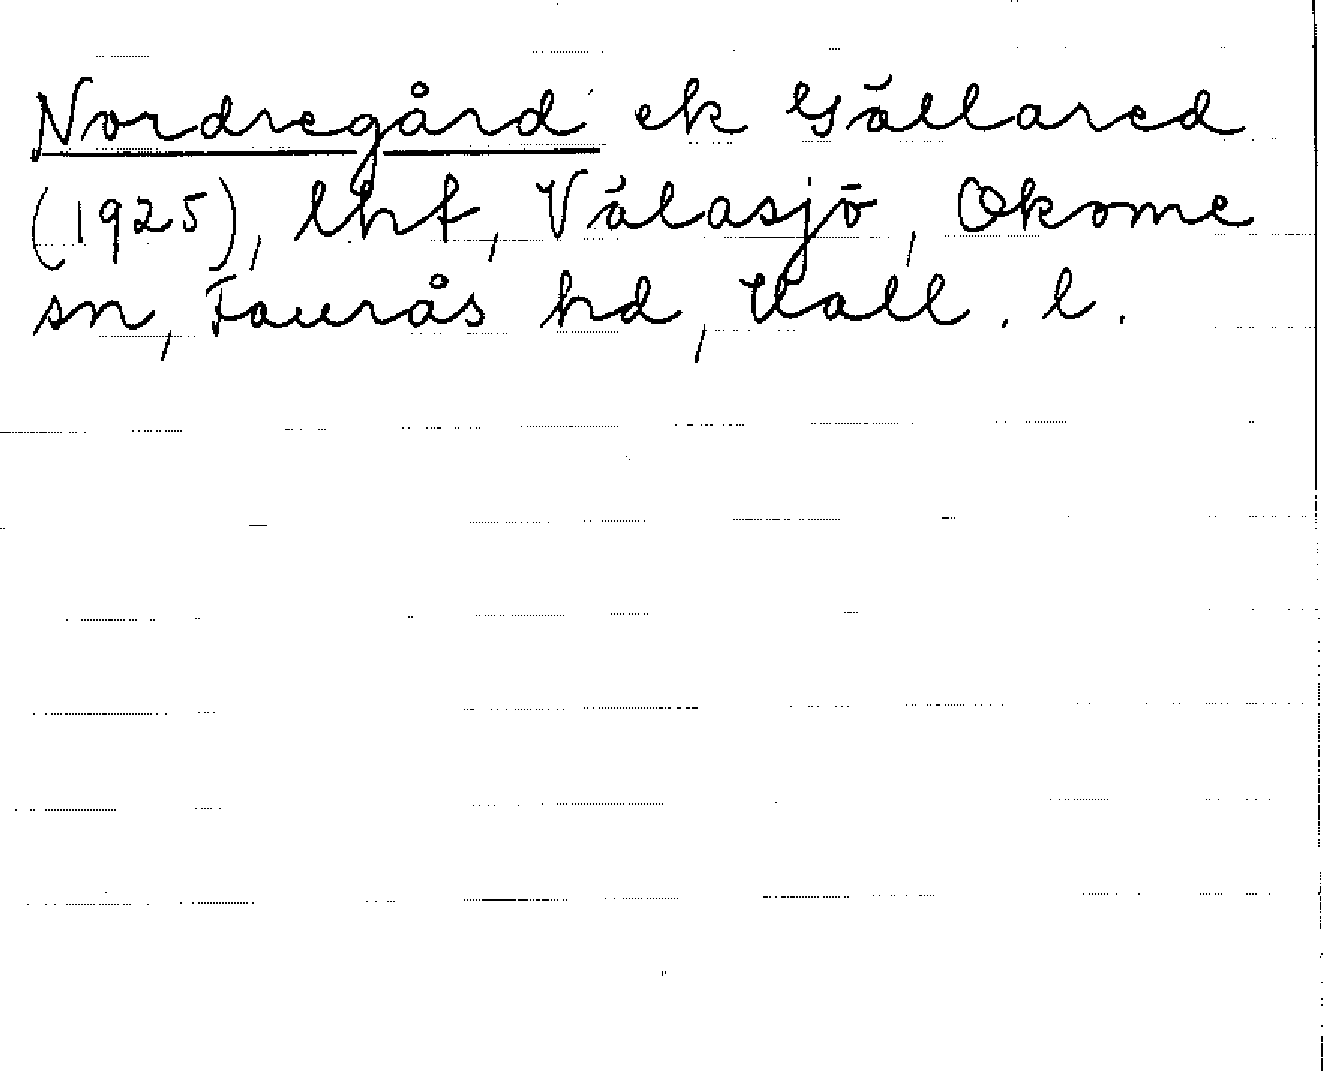 Nordregård ek Gällared
(1925), lht, Välasjö, Okome
sn, Faurås hd, Hall. l.